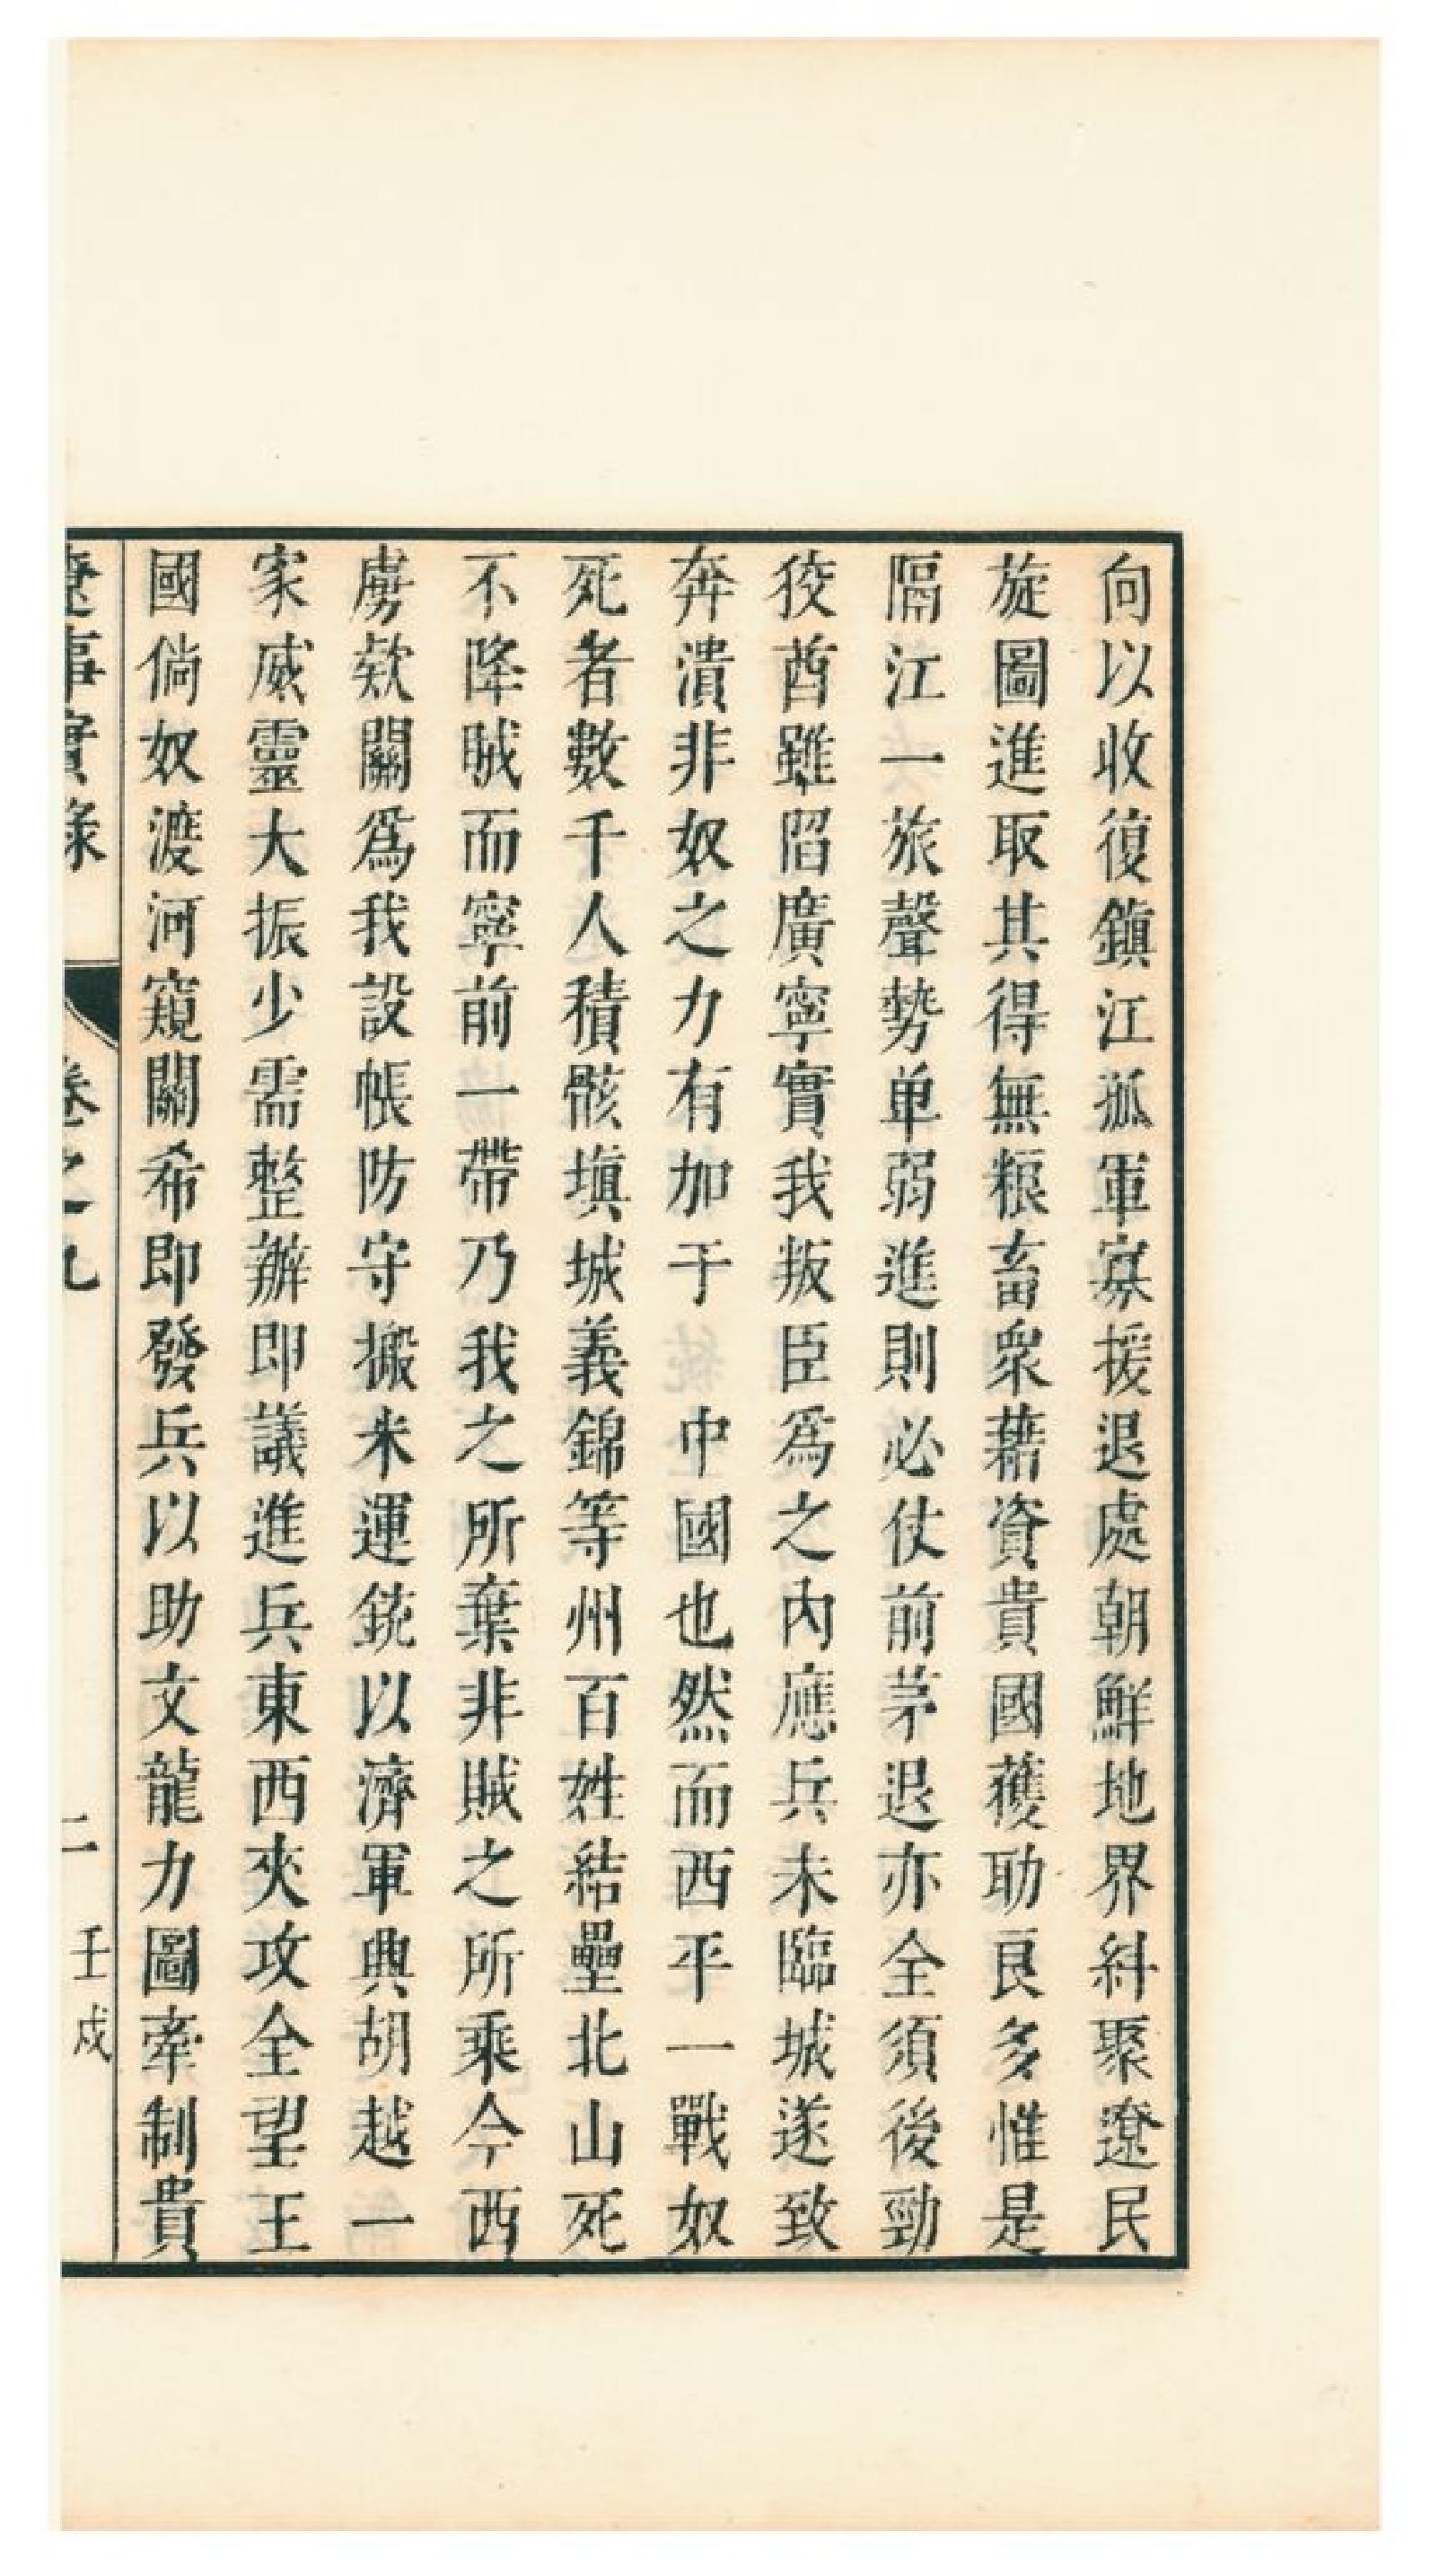 向以收復鎮江孤軍寡援退處朝鮮地界糾聚遼民
旋圖進取其得無粮畜衆藉資貴國獲助良多惟是
隔江一旅聲勢单弱進則必仗前茅退亦全須後勁
狡酋雖陷廣寧實我叛臣爲之內應兵未臨城遂致
奔潰非奴之力有加于中國也然而西平一戰奴
死者數千人積骸塡城義錦等州百姓結壘北山死
不降賊而寧前一帶乃我之所棄非賊之所乘今西
虜欵關爲我設帳防守搬米運銃以濟軍典胡越一
家威靈大振少需整辦即議進兵東西夾攻全望王
國倘奴渡河窺關希即發兵以助文龍力圖牽制貴
遼事實錄 卷之九 二 壬戌